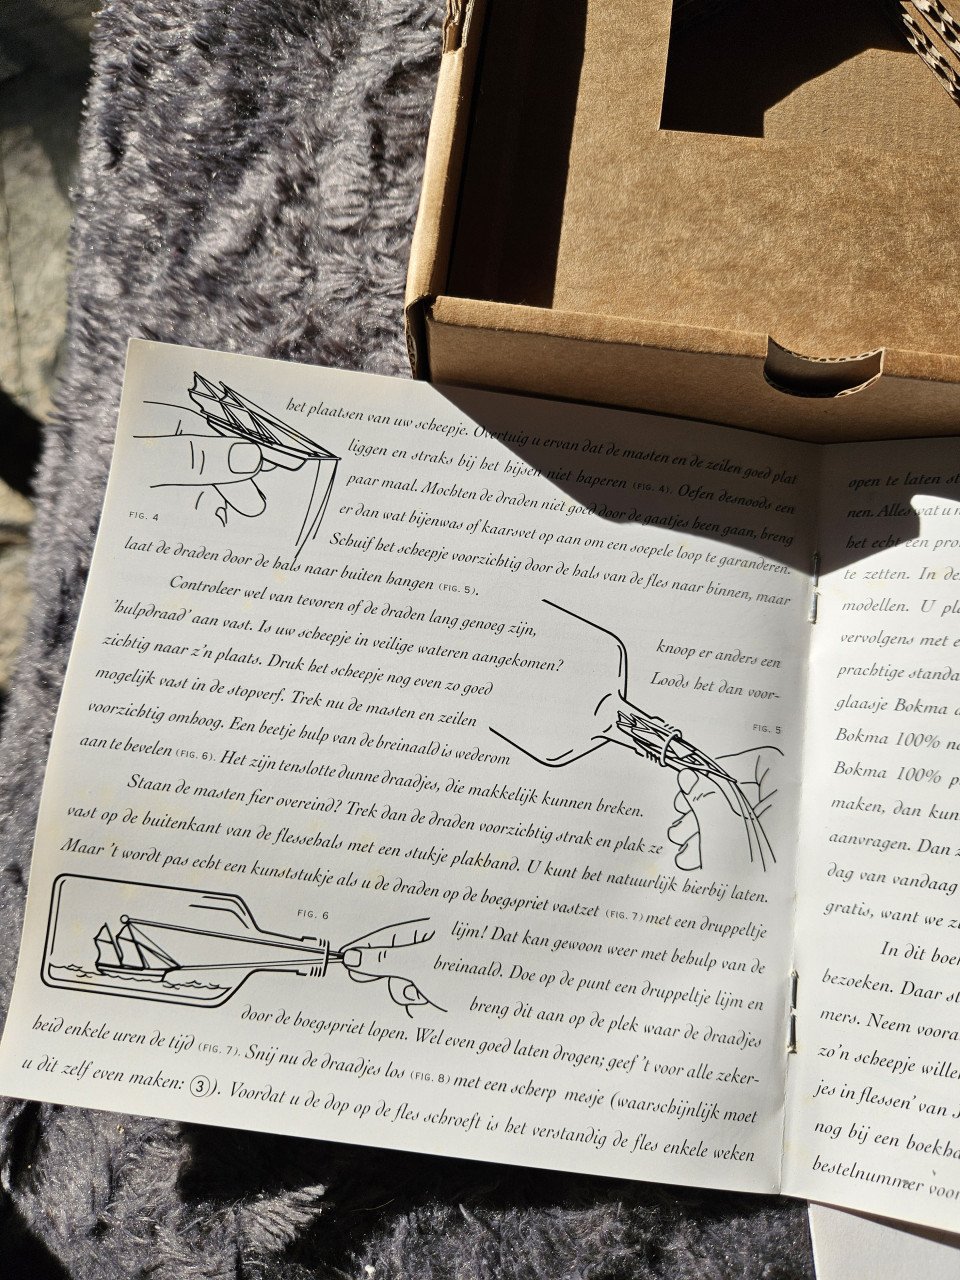 het plaatsen van uw scheepje. Overtuig u ervan dat de masten en de zeilen goed plat
liggen en straks bij het hijsen niet haperen (FIG. 4). Oefen desnoods een
paar maal. Mochten de draden niet goed door de gaatjes heen gaan, breng
er dan wat bijenwas of kaarsvet op aan om een soepele loop te garanderen.
Schuif het scheepje voorzichtig door de hals van de fles naar binnen, maar
FIG. 4
laat de draden door de hals naar buiten hangen (FIG. 5).
Controleer wel van tevoren of de draden lang genoeg zijn,
knoop er anders een
'hulpdraad' aan vast. Is uw scheepje in veilige wateren aangekomen?
Loods het dan voor-
zichtig naar z'n plaats. Druk het scheepje nog even zo goed
FIG. 5
mogelijk vast in de stopverf. Trek nu de masten en zeilen
voorzichtig omhoog. Een beetje hulp van de breinaald is wederom
aan te bevelen (FIG. 6). Het zijn tenslotte dunne draadjes, die makkelijk kunnen breken.
Staan de masten fier overeind? Trek dan de draden voorzichtig strak en plak ze
vast op de buitenkant van de flessehals met een stukje plakband. U kunt het natuurlijk hierbij laten.
Maar 't wordt pas echt een kunststukje als u de draden op de boegspriet vastzet (FIG. 7) met een druppeltje
FIG. 6
lijm! Dat kan gewoon weer met behulp van de
breinaald. Doe op de punt een druppeltje lijm en
breng dit aan op de plek waar de draadjes
door de boegspriet lopen. Wel even goed laten drogen; geef 't voor alle zeker-
heid enkele uren de tijd (FIG. 7). Snij nu de draadjes los (FIG. 8) met een scherp mesje (waarschijnlijk moet
u dit zelf even maken: 3). Voordat u de dop op de fles schroeft is het verstandig de fles enkele weken
open te laten
nen. Alles wat u
het echt een
te zetten. In
modellen. U
vervolgens met
prachtige
glaasje Bokma
Bokma 100%
Bokma 100%
maken, dan
aanvragen. Dan
dag van vandaag
gratis, want we
In dit
bezoeken. Daar
mers. Neem
zo'n scheepje
jes in flessen' van
nog bij een
bestelnummer